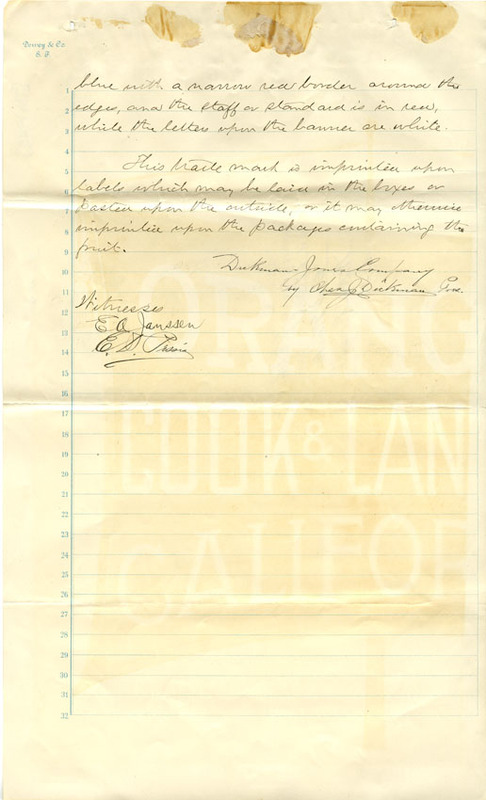 Dewey & Co
S. F.
blue with a narrow red border around the
edges, and the staff or standard is in red,
while the letters upon the banner are white.
This trade mark is imprinted upon
labels which may be laid in the boxes or
pasted upon the outside, or it may otherwise
imprinted upon the packages containing the
fruit.
Dickman-Jones Company
by Chas J. Dickman Pres.
Witnesses
E A Janssen
E. D.
1
2
3
4
5
6
7
8
9
10
11
12
13
14
15
16
17
18
19
20
21
22
23
24
25
26
27
28
29
30
31
32
ORANG
COOK & LAN
CALIFOR